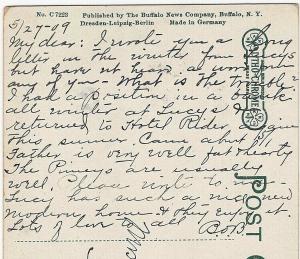 No. C7223 Published by The Buffalo News Company, Buffalo, N. Y.
Dresden-Leipzig-Berlin Made in Germany
5/27-09
My dear: I wrote you long
letter in the winter from Lucys
have not heard a word from
any of you - What is the trouble?
I had a position in a
all winter at Lucy's
returned to Hotel Rider again
this summer. Came
Father is very well fat & hearty
The are usually
well. Please write to me
Lucy has such a
modern home & they enjoy it.
Lots of love to all
POST C